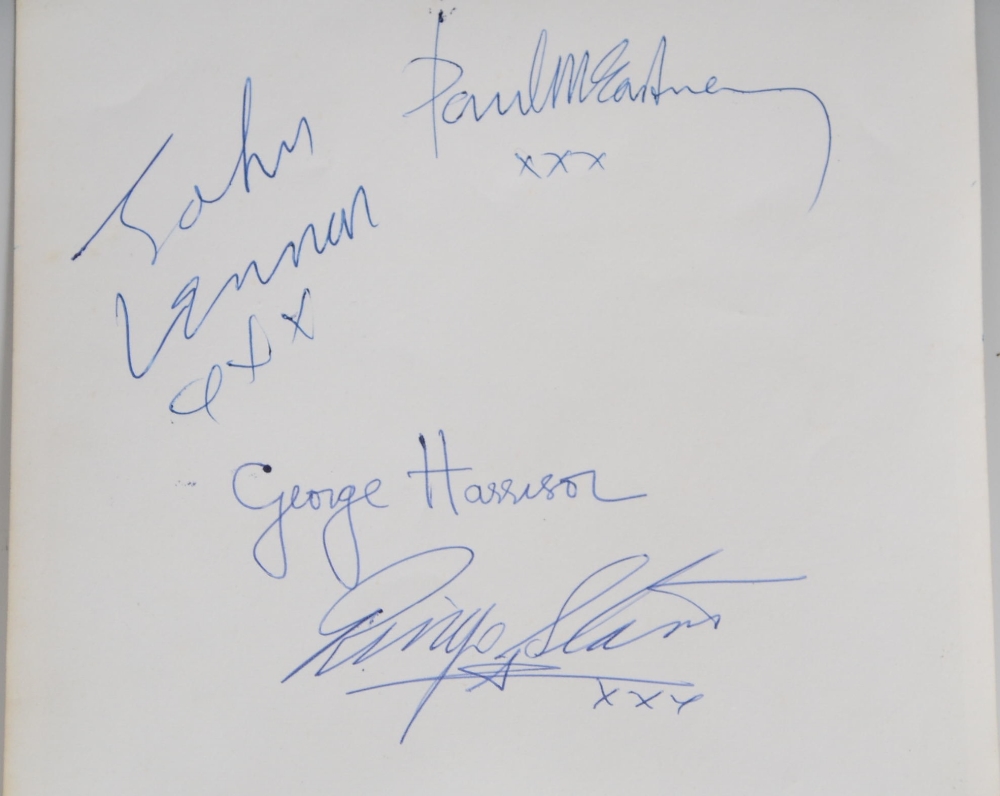 Paul McCartney
xxx
John
Lennon
xxx
George Harrison
Ringo Starr
xxx